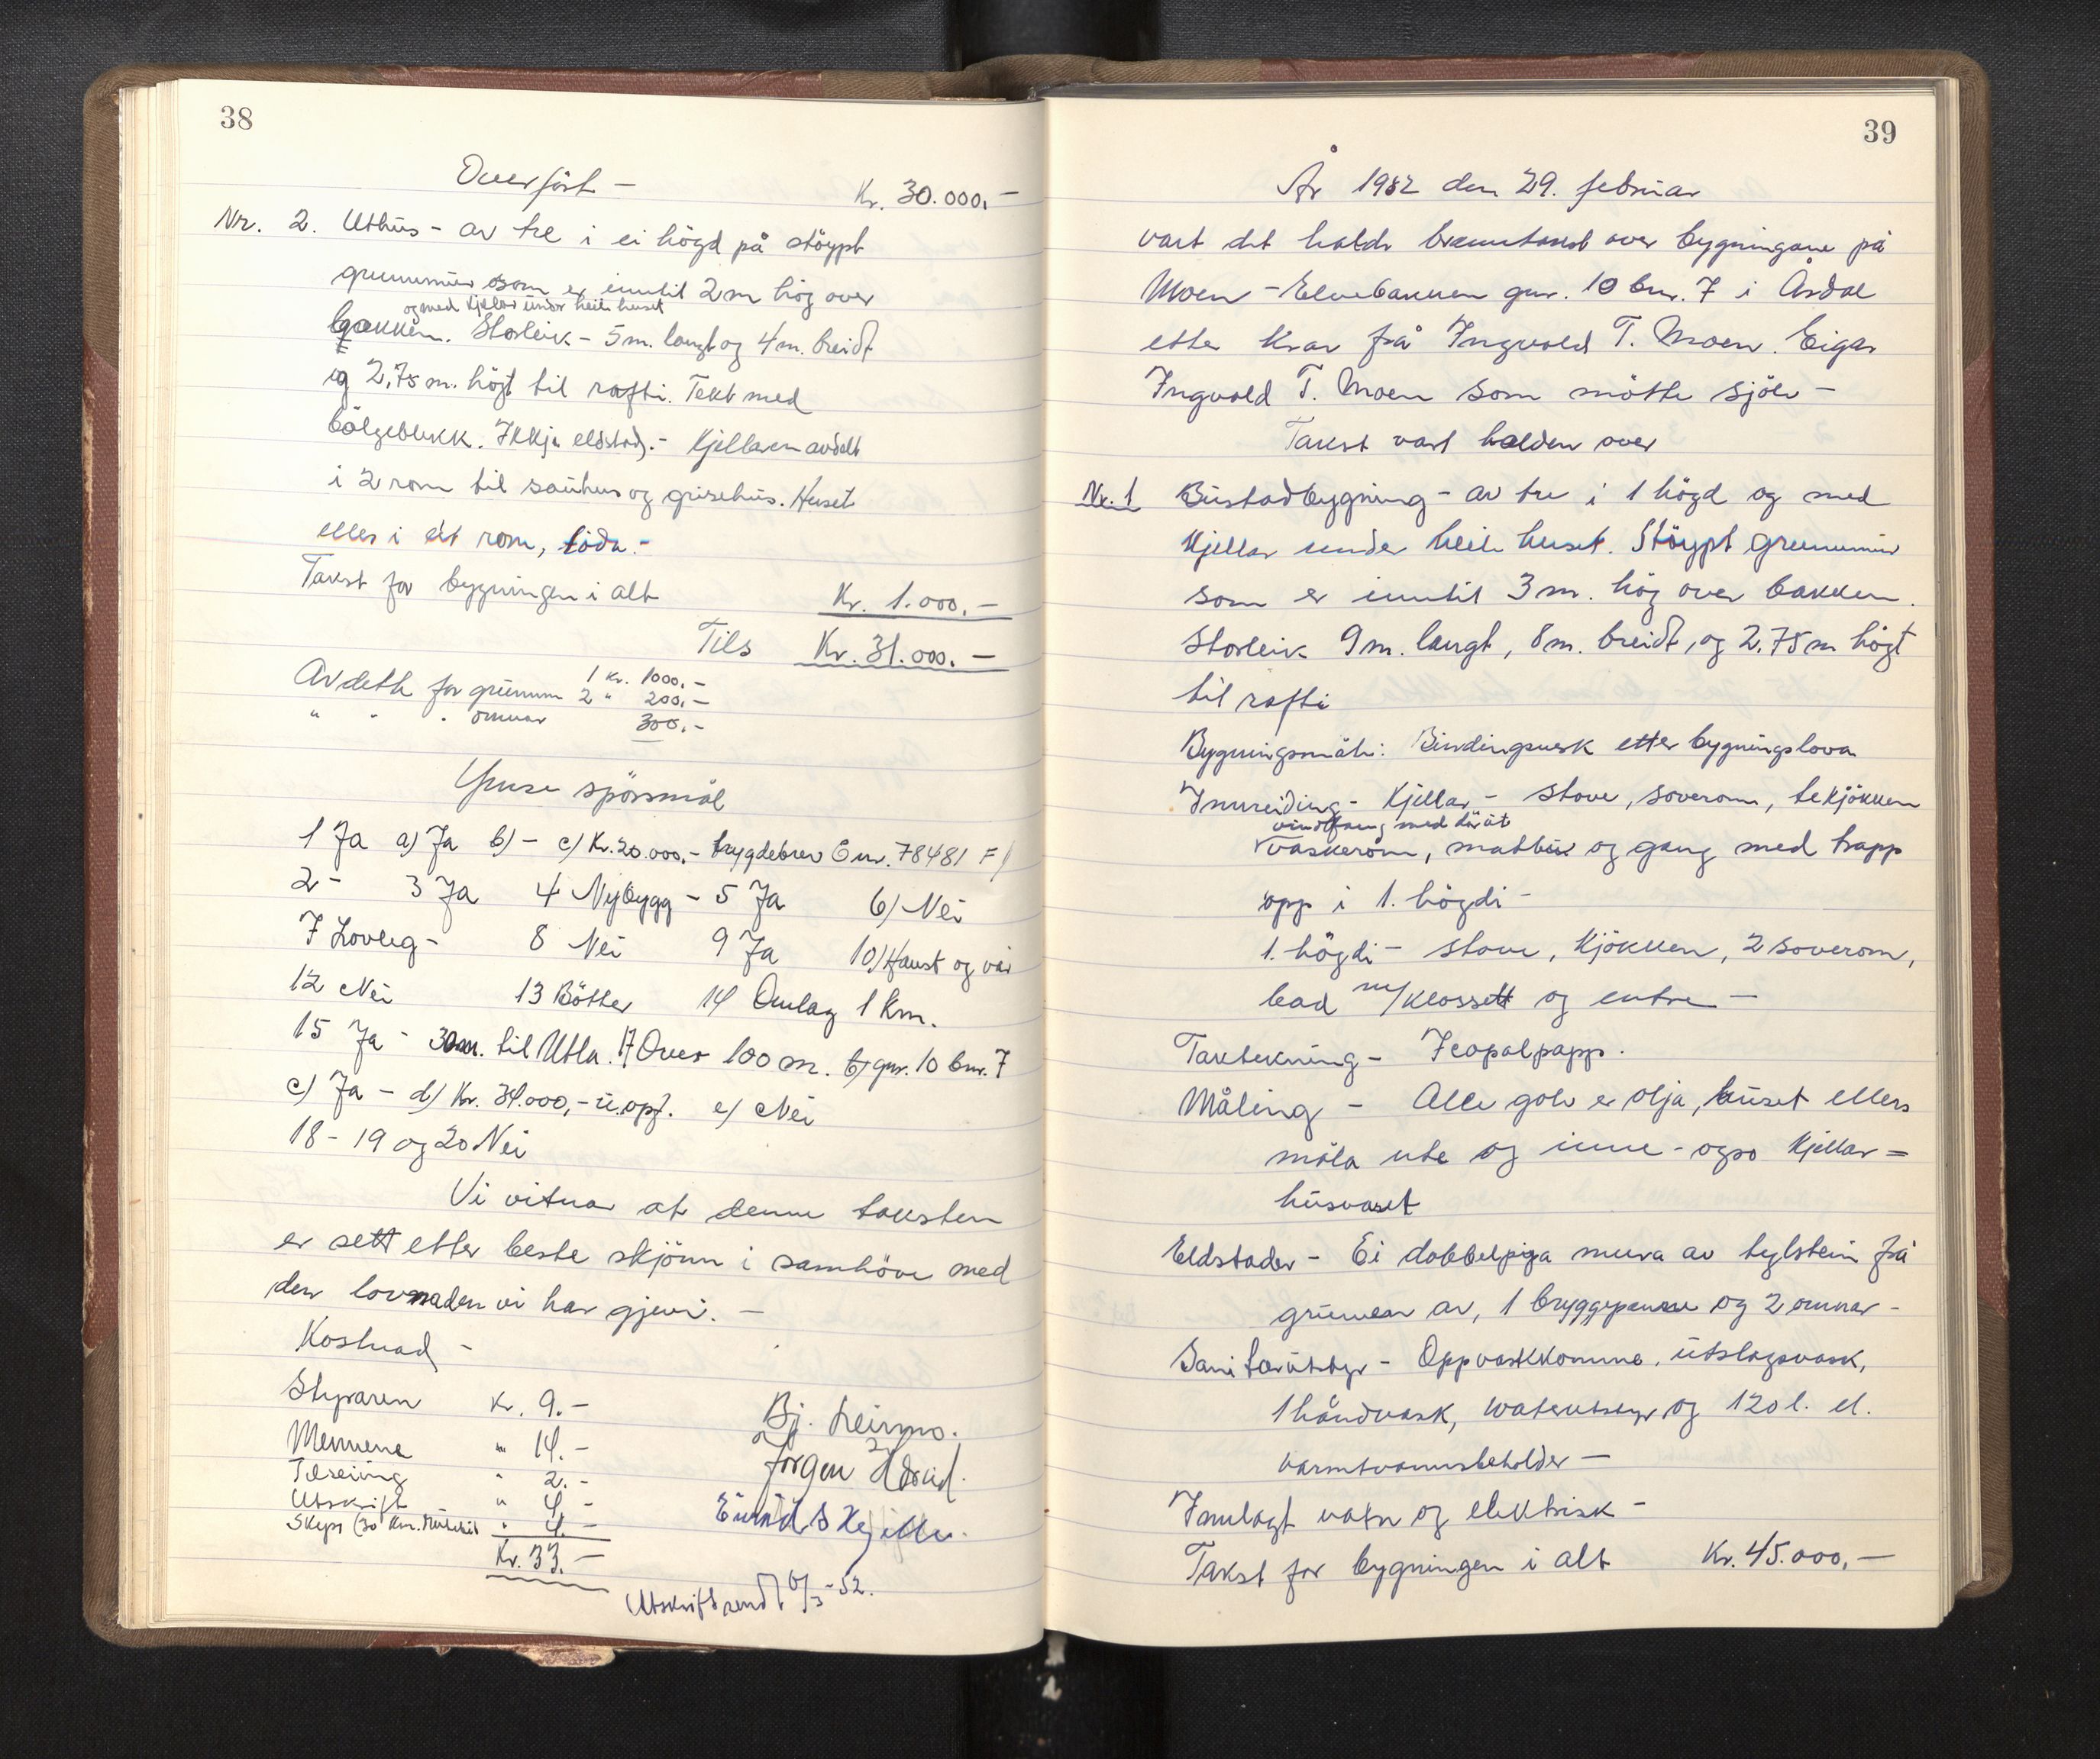 38
Overført - Kr. 30.000,-
Nr. 2. Uthus - av tre i ei högd på stöypt
grunnmur som er inntil 2 m hög over
og med kjellar under heile huset
bakken. Storleik - 5 m. langt og 4 m. breidt
og 2,75 m. högt til rafti. Tekt med
bölgeblikk. Ikkje eldstad. - Kjellaren avdelt
i 2 rom til sauhus og grisehus. Huset
elles i eit rom, löda. -
Takst for bygningen i alt Kr. 1.000,-
Tils Kr. 31.000.-
Av dette for grunnm 1 Kr. 1000,-
2 " 200,-
" " " omnar 300,-
Ymse spörsmål
1 Ja a) Ja b) - c) Kr. 20.000,- trygdebrev Enr. 78481 F)
2 - 3 Ja 4 Nybygg - 5 Ja 6) Nei
7 Lovleg - 8 Nei 9 Ja 10) Haust og vår
12 Nei 13 Bötter 14 Omlag 1 km.
15 Ja - 30 m. til Utla. 17 Over 100 m. b) gnr. 10 bnr. 7
c) Ja - d) Kr. 34.000,- u.opf. e) Nei
18 - 19 og 20 Nei
Vi vitnar at denne taksten
er sett etter beste skjönn i samhöve med
den lovnaden vi har gjevi. -
Kostnad -
Styraren Kr. 9.-
Mennene " 14.-
Tilreiing " 2.-
Utskrift " 4.-
Skyss (30 km. " 4.-
Kr. 33.-
Bj. Leirmo.
Jörgen
Utskrift sendt 6/3 - 52.
39
År 1952 den 29. februar
vart det halde branntakst over bygningane på
Moen - Elvebakken gnr. 10 bnr. 7 i Årdal
etter krav frå Ingvald T. Moen. Eigar
Ingvald T. Moen som mötte sjölv -
Takst vart halden over
Nr. 1 Bustadbygning - av tre i 1 högd og med
kjellar under heile huset. Stöypt grunnmur
som er inntil 3 m. hög over bakken.
Storleik 9 m. langt, 8 m. breidt, og 2.75 m högt
til rafti
Bygningsmåte: Bindingsverk etter bygningslova
Innreiding - Kjellar - stove, soverom, tekjökken
vindfang med dör ut
vaskerom, matbu og gang med trapp
opp i 1. högdi -
1. högdi - stove, kjökken, 2 soverom,
bad m/klossett og entre -
Taktekning - Icopalpapp.
Måling - Alle golv er olja, huset elles
måla ute og inne - ogso kjellar=
husvöret
Eldstader - Ei dobbelpipa mura av teglstein frå
grunnen av, 1 bryggepanne og 2 omnar -
Sanitærutstyr - Oppvaskkomme, utslagsvask,
1 håndvask, waterutstyr og 120 l. el.
varmtvannsbeholder -
Innlagt vatn og elektrisk -
Takst for bygningen i alt Kr. 45.000,-